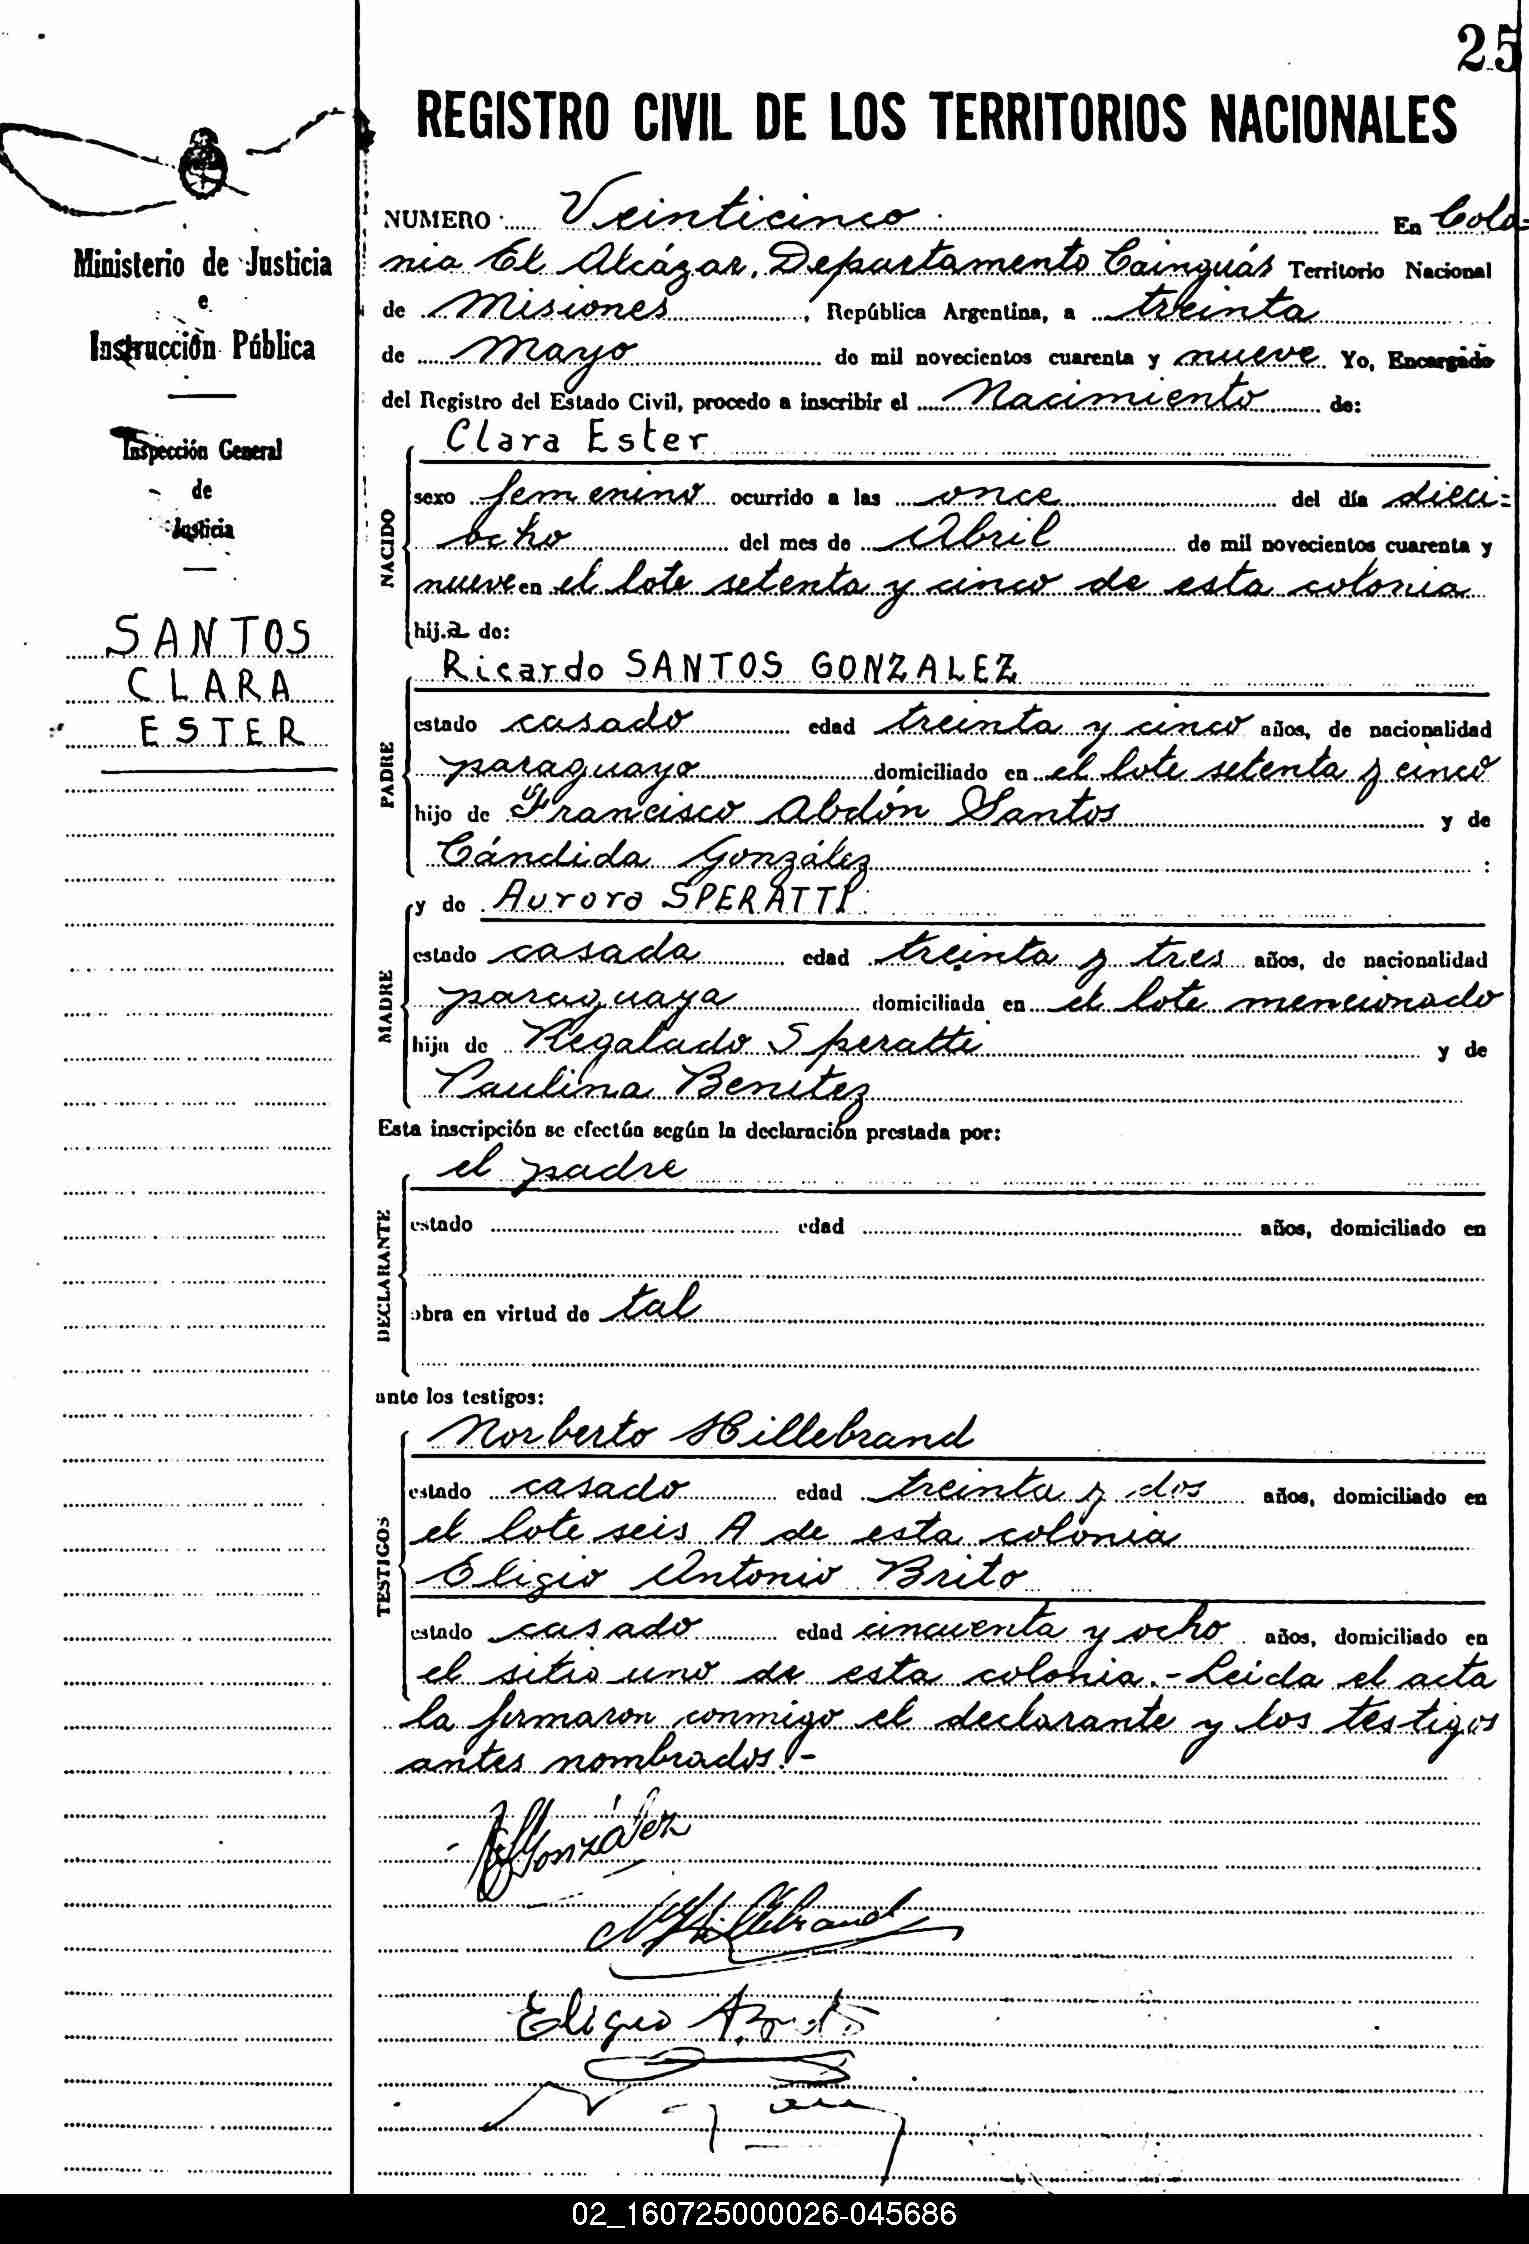 25
REGISTRO CIVIL DE LOS TERRITORIOS NACIONALES
NUMERO Veinticinco En Colo=
nia El Alcázar, Departamento Cainguás Territorio Nacional
de Misiones, República Argentina, a treinta
de Mayo de mil novecientos cuarenta y nueve Yo, Encargado
del Registro del Estado Civil, procedo a inscribir el Nacimiento de:
Ministerio de Justicia
e
Instrucción Pública
Inspección General
de
Justicia
SANTOS
CLARA
ESTER
NACIDO
Clara Ester
sexo femenino ocurrido a las once del día dieci=
ocho del mes de Abril de mil novecientos cuarenta y
nueve en el lote setenta y cinco de esta colonia
hij.a de:
PADRE
Ricardo SANTOS GONZALEZ
estado casado edad treinta y cinco años, de nacionalidad
paraguayo domiciliado en el lote setenta y cinco
hijo de Francisco Abdón Santos y de
Cándida González
MADRE
y de Aurora SPERATTI
estado casada edad treinta y tres años, de nacionalidad
paraguaya domiciliada en el lote mencionado
hija de Regalado Speratti y de
Paulina Benitez
Esta inscripción se efectúa según la declaración prestada por:
DECLARANTE
el padre
estado edad años, domiciliado en
obra en virtud de tal
ante los testigos:
TESTIGOS
Norberto Hillebrand
estado casado edad treinta y dos años, domiciliado en
el lote seis A de esta colonia
Eligio Antonio Brito
estado casado edad cincuenta y ocho años, domiciliado en
el sitio uno de esta colonia.- Leida el acta
la firmaron conmigo el declarante y los testigos
antes nombrados.-
González
Hillebrand
Eligio A. Brito
02_160725000026-045686